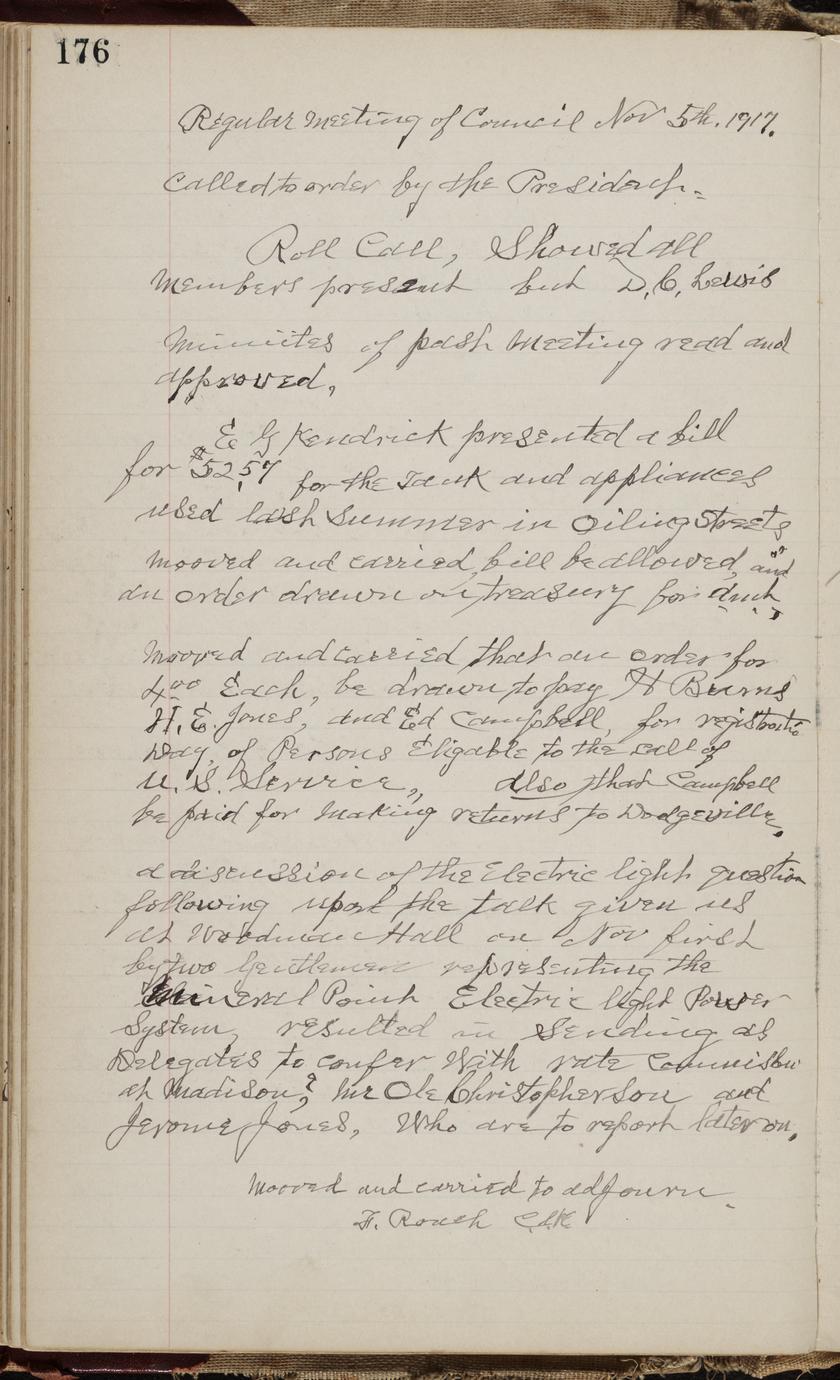 176
Regular Meeting of Council Nov 5th. 1917.
Called to order by the President.
Roll Call, Showed all
Members present but D. C. Lewis
Minuites of past Meeting read and
approved,
E G Kendrick presented a bill
for $52.57 for the Tank and appliances
used last Summer in Oiling Streets
Mooved and carried, bill be allowed, and
an order drawn on treasury for
Mooved and carried that an order for
4.00 Each, be drawn to pay H Burns
H. E. Jones, and Ed Campbell, for registratio
Day, of Persons Eligable to the call of
U. S. Service,, also that Campbell
be paid for Making returns to Dodgeville,
a discussion of the Electric light question
following upon the talk given us
at Woodman Hall on Nov first
by two Gentlemen representing the
Mineral Point Electric light Power
System, resulted in Sending as
Delegates to confer With rate
at Madison, Mr Ole Christopherson and
Jerome Jones, Who are to report later on.
Mooved and carried to adjourn
F. Clk